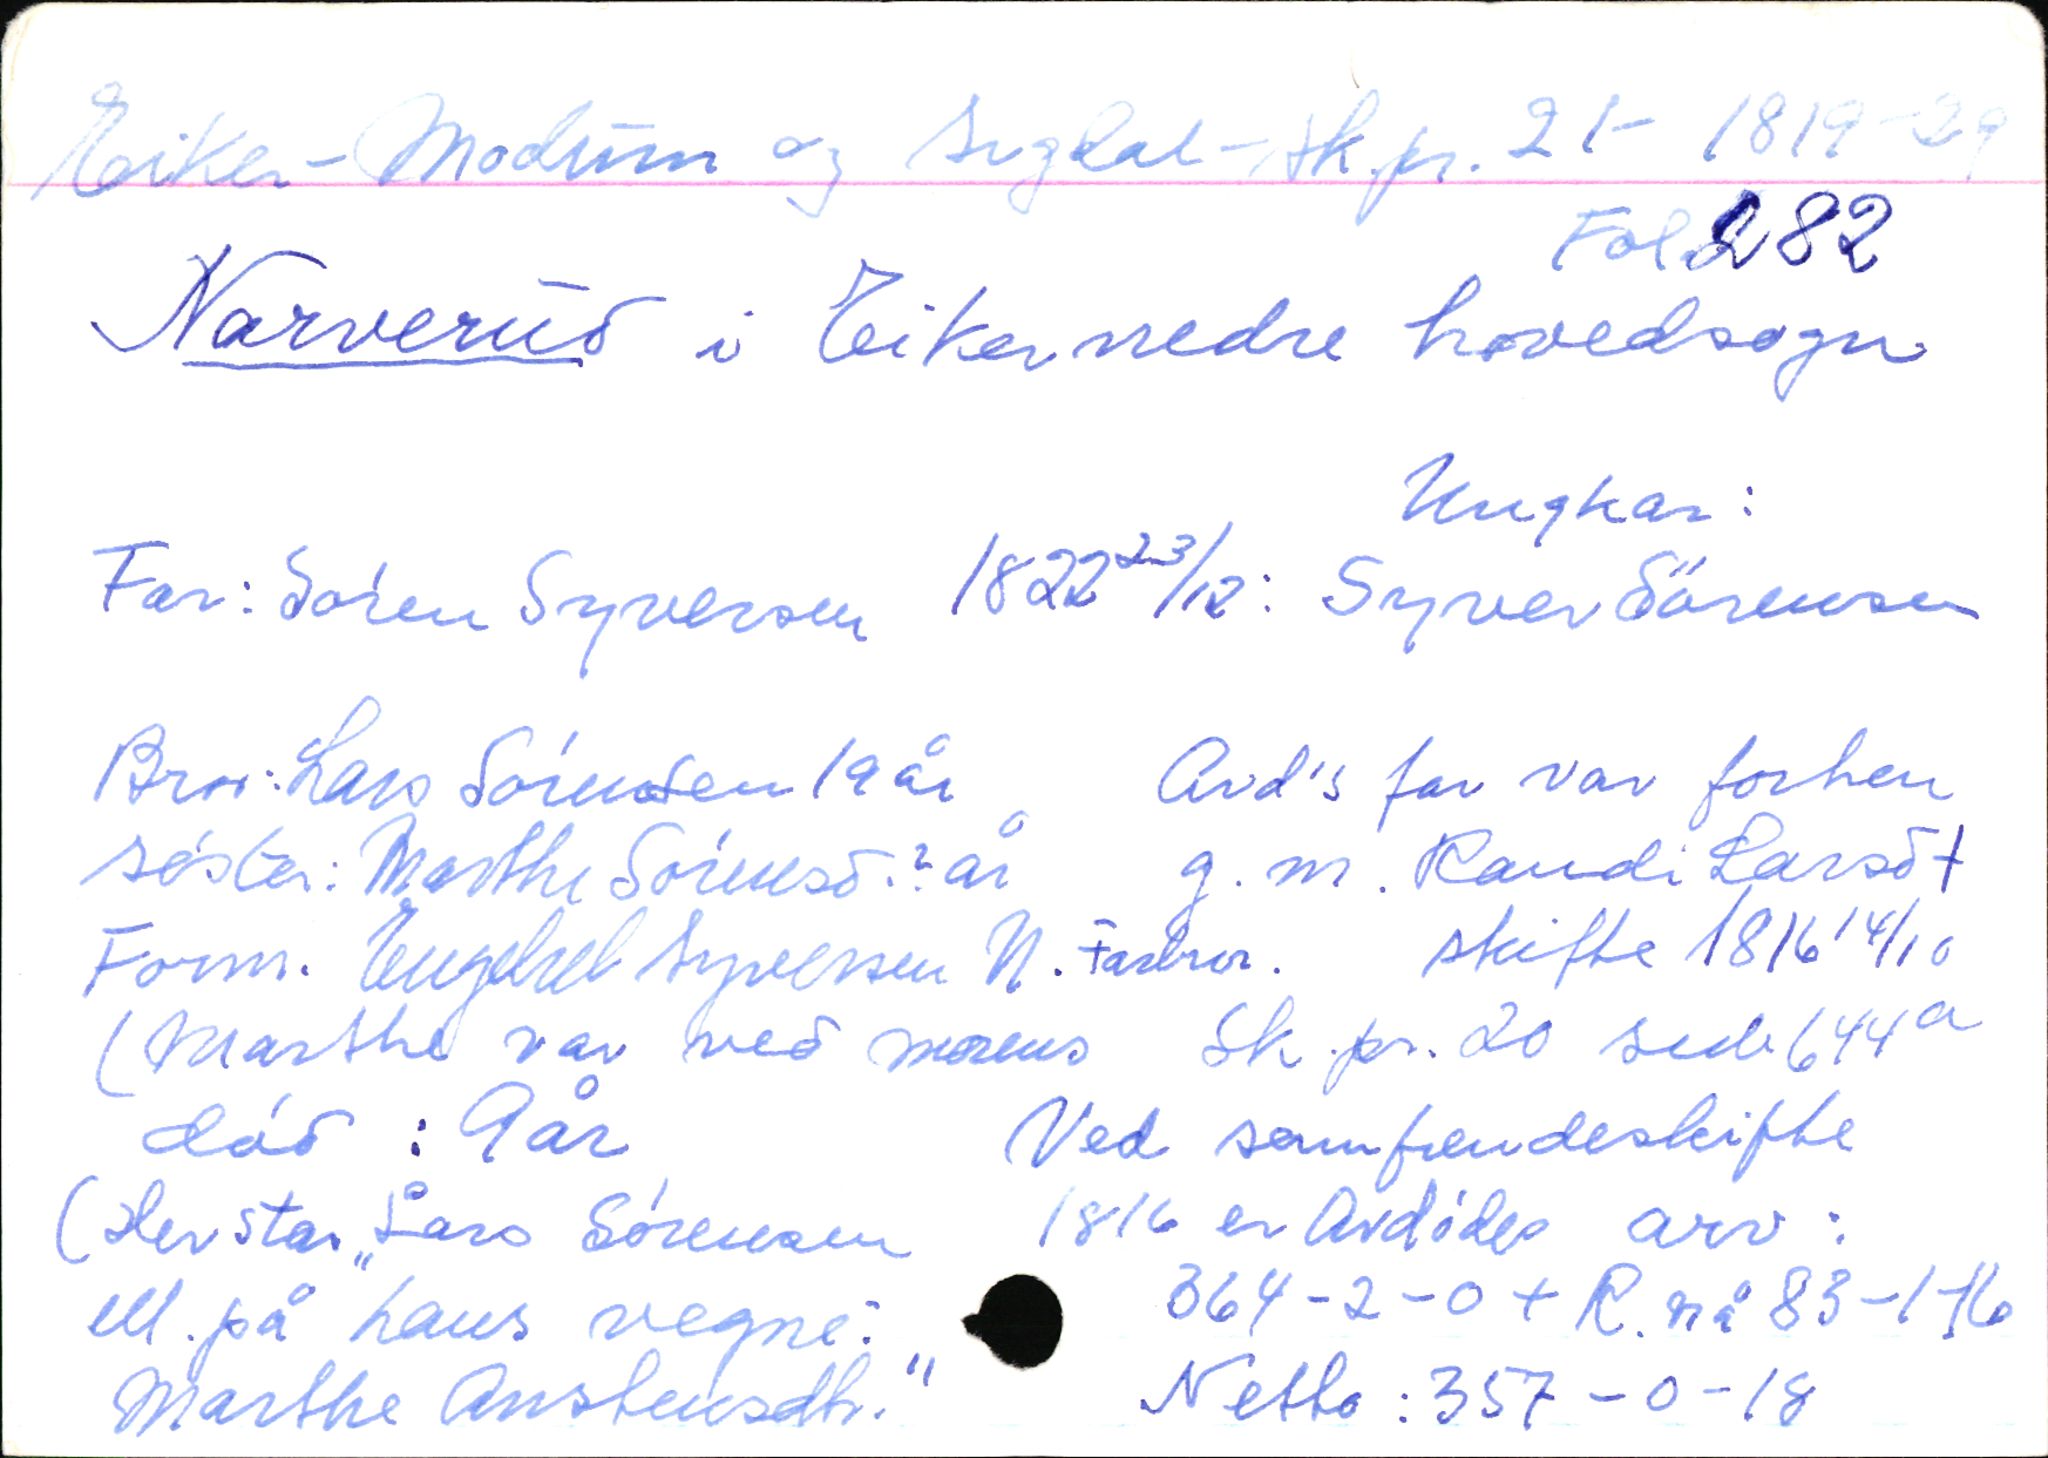 Eiker-Modum og Sigdal-sk.pr. 21- 1819-29
Fol. 282
Narverud i Eiker nedre hovedsogn
Ungkar:
Far: Sören Syversen 1822 23/12: Syver Sörensen
Bror: Lars Sörensen 19 år
søster: Marthe Sörensd. ? år
Form. Engebret Syversen N. Farbror.
(Marthe var ved morens
død : 9 år
(Her står "Lars Sörensen
ell. på hans vegne:
Marthe Anstensdtr."
Avd's far var forhen
g. m. Randi Larsd †
skifte 1816 14/10
Sk. pr. 20 sub 644 a
Ved samfrendeskifte
1816 er Avdødes arv :
364-2-0 + R. nå 83-1-16
Netto : 357-0-18